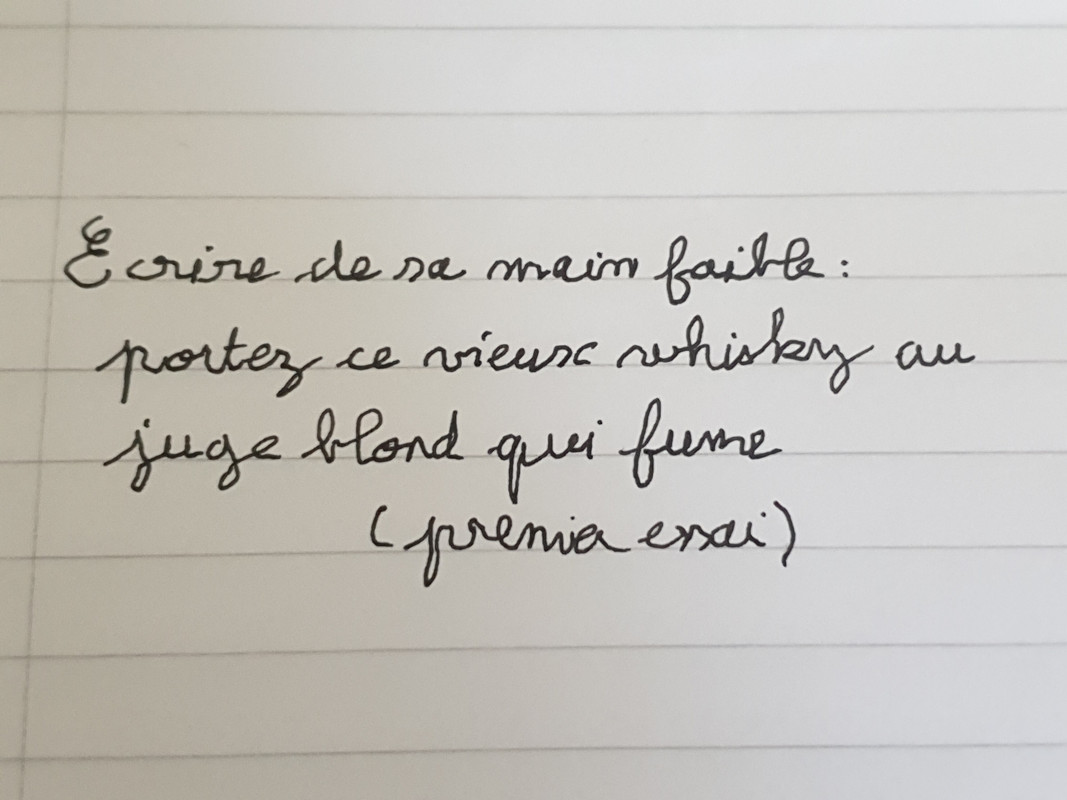 Ecrire de sa main faible :
portez ce vieux whisky au
juge blond qui fume
(premier essai)